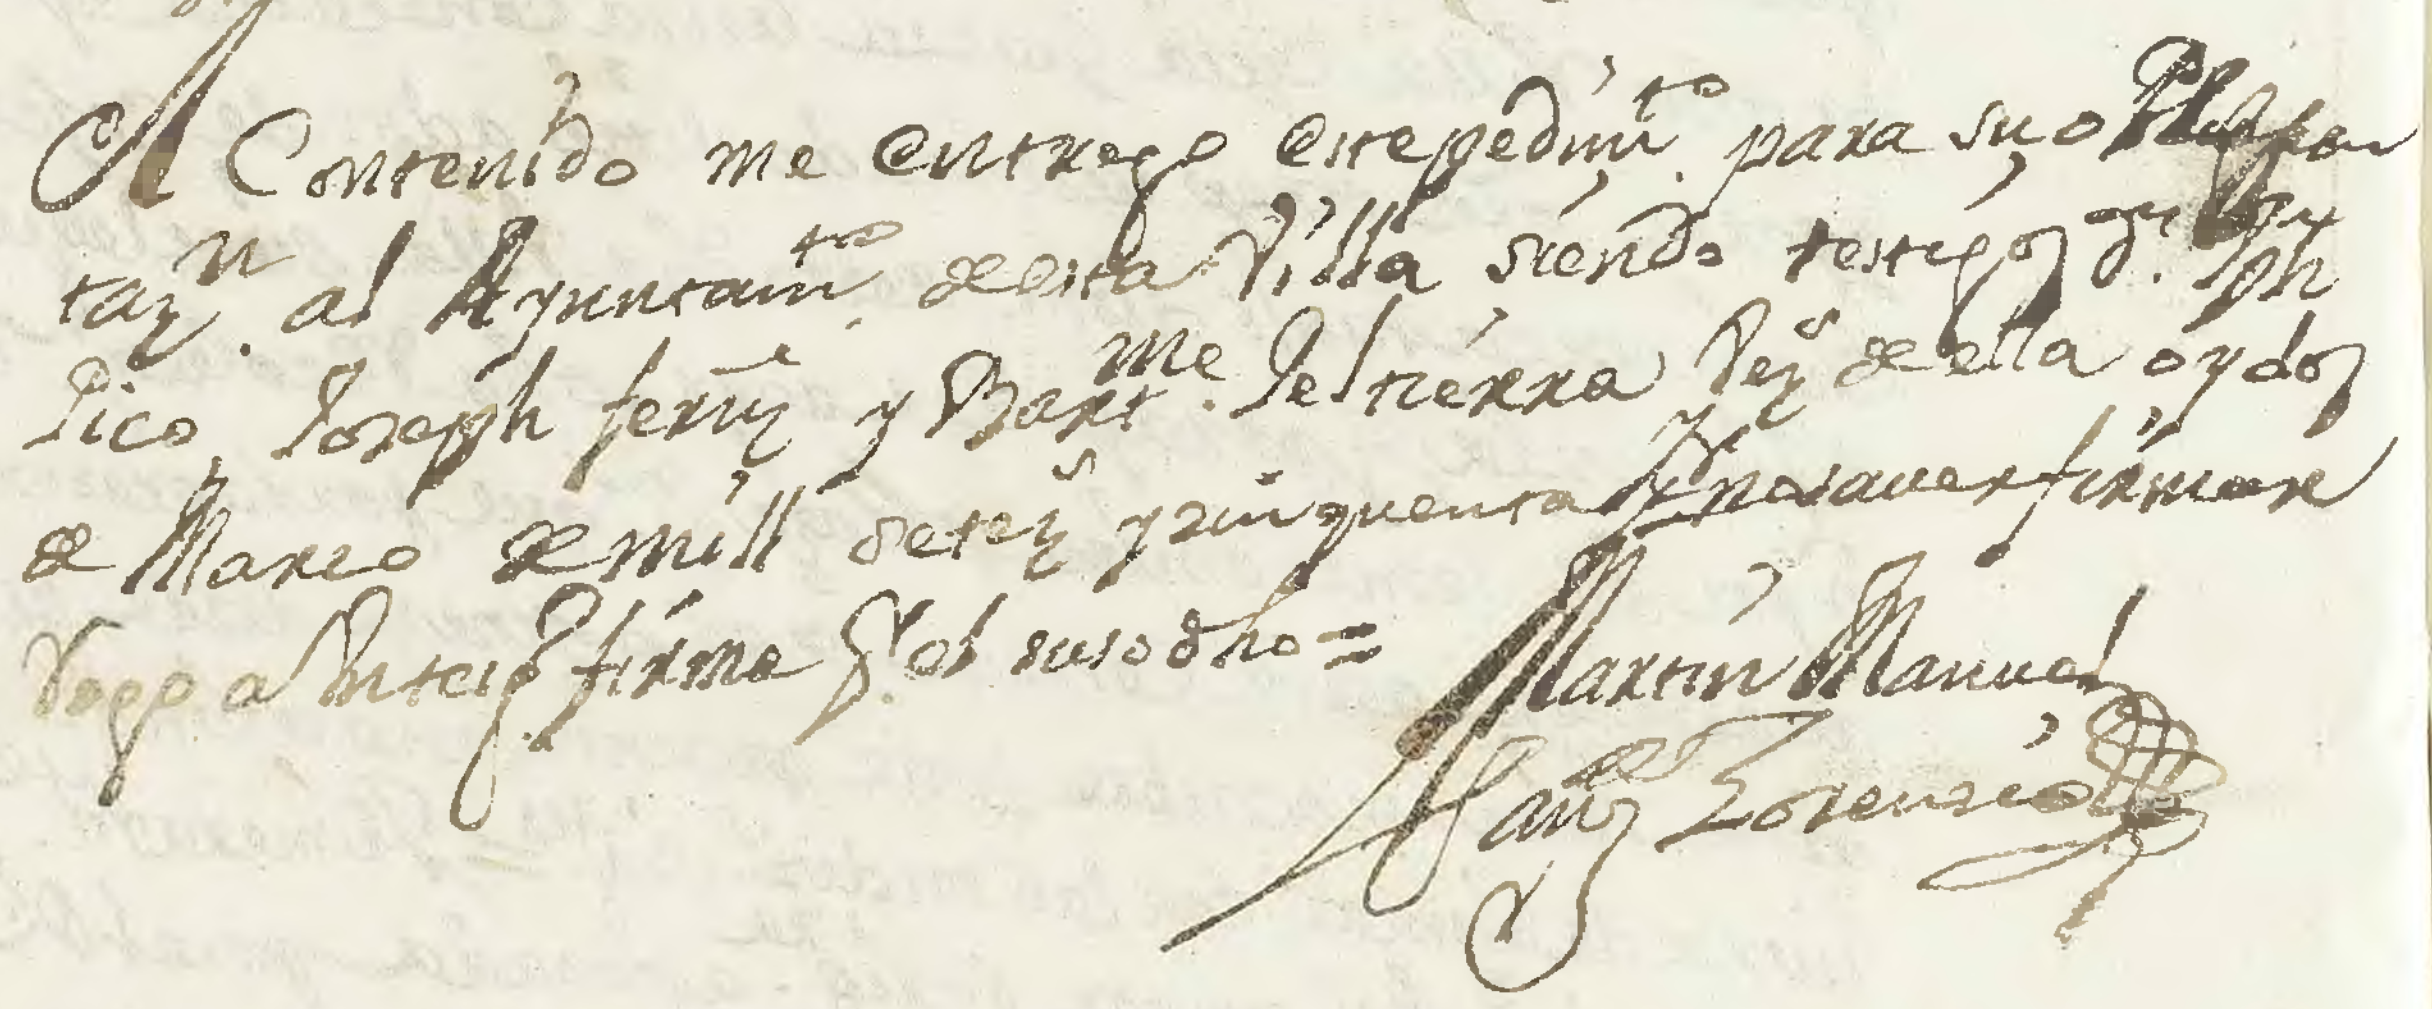 El Contenido me entrego este pedim.to para su
taz.n al Ayuntam.to desta Villa siendo testigos d.n Jph
Pico, Joseph fern.z y Bart.me Pelsierra Vez.s de ella oy dos
de Marzo de mill setez.s y zinquenta y no saver firmar
rogo a un testigo firme p.r el susodho =
Martin Manuel
de Lorenzio